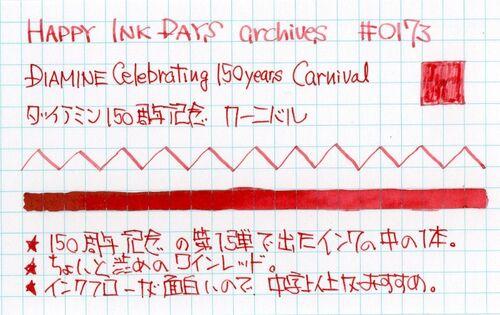 HAPPY INK DAYS archives #0173
DIAMINE Celebrating 150years Carnival
ダイアミン150周年記念 カーニバル
★ 150周年記念の第1弾で出たインクの中の1本。
★ ちょいと渋めのワインレッド。
★ インクフローが面白いので、中字以上がおすすめ。